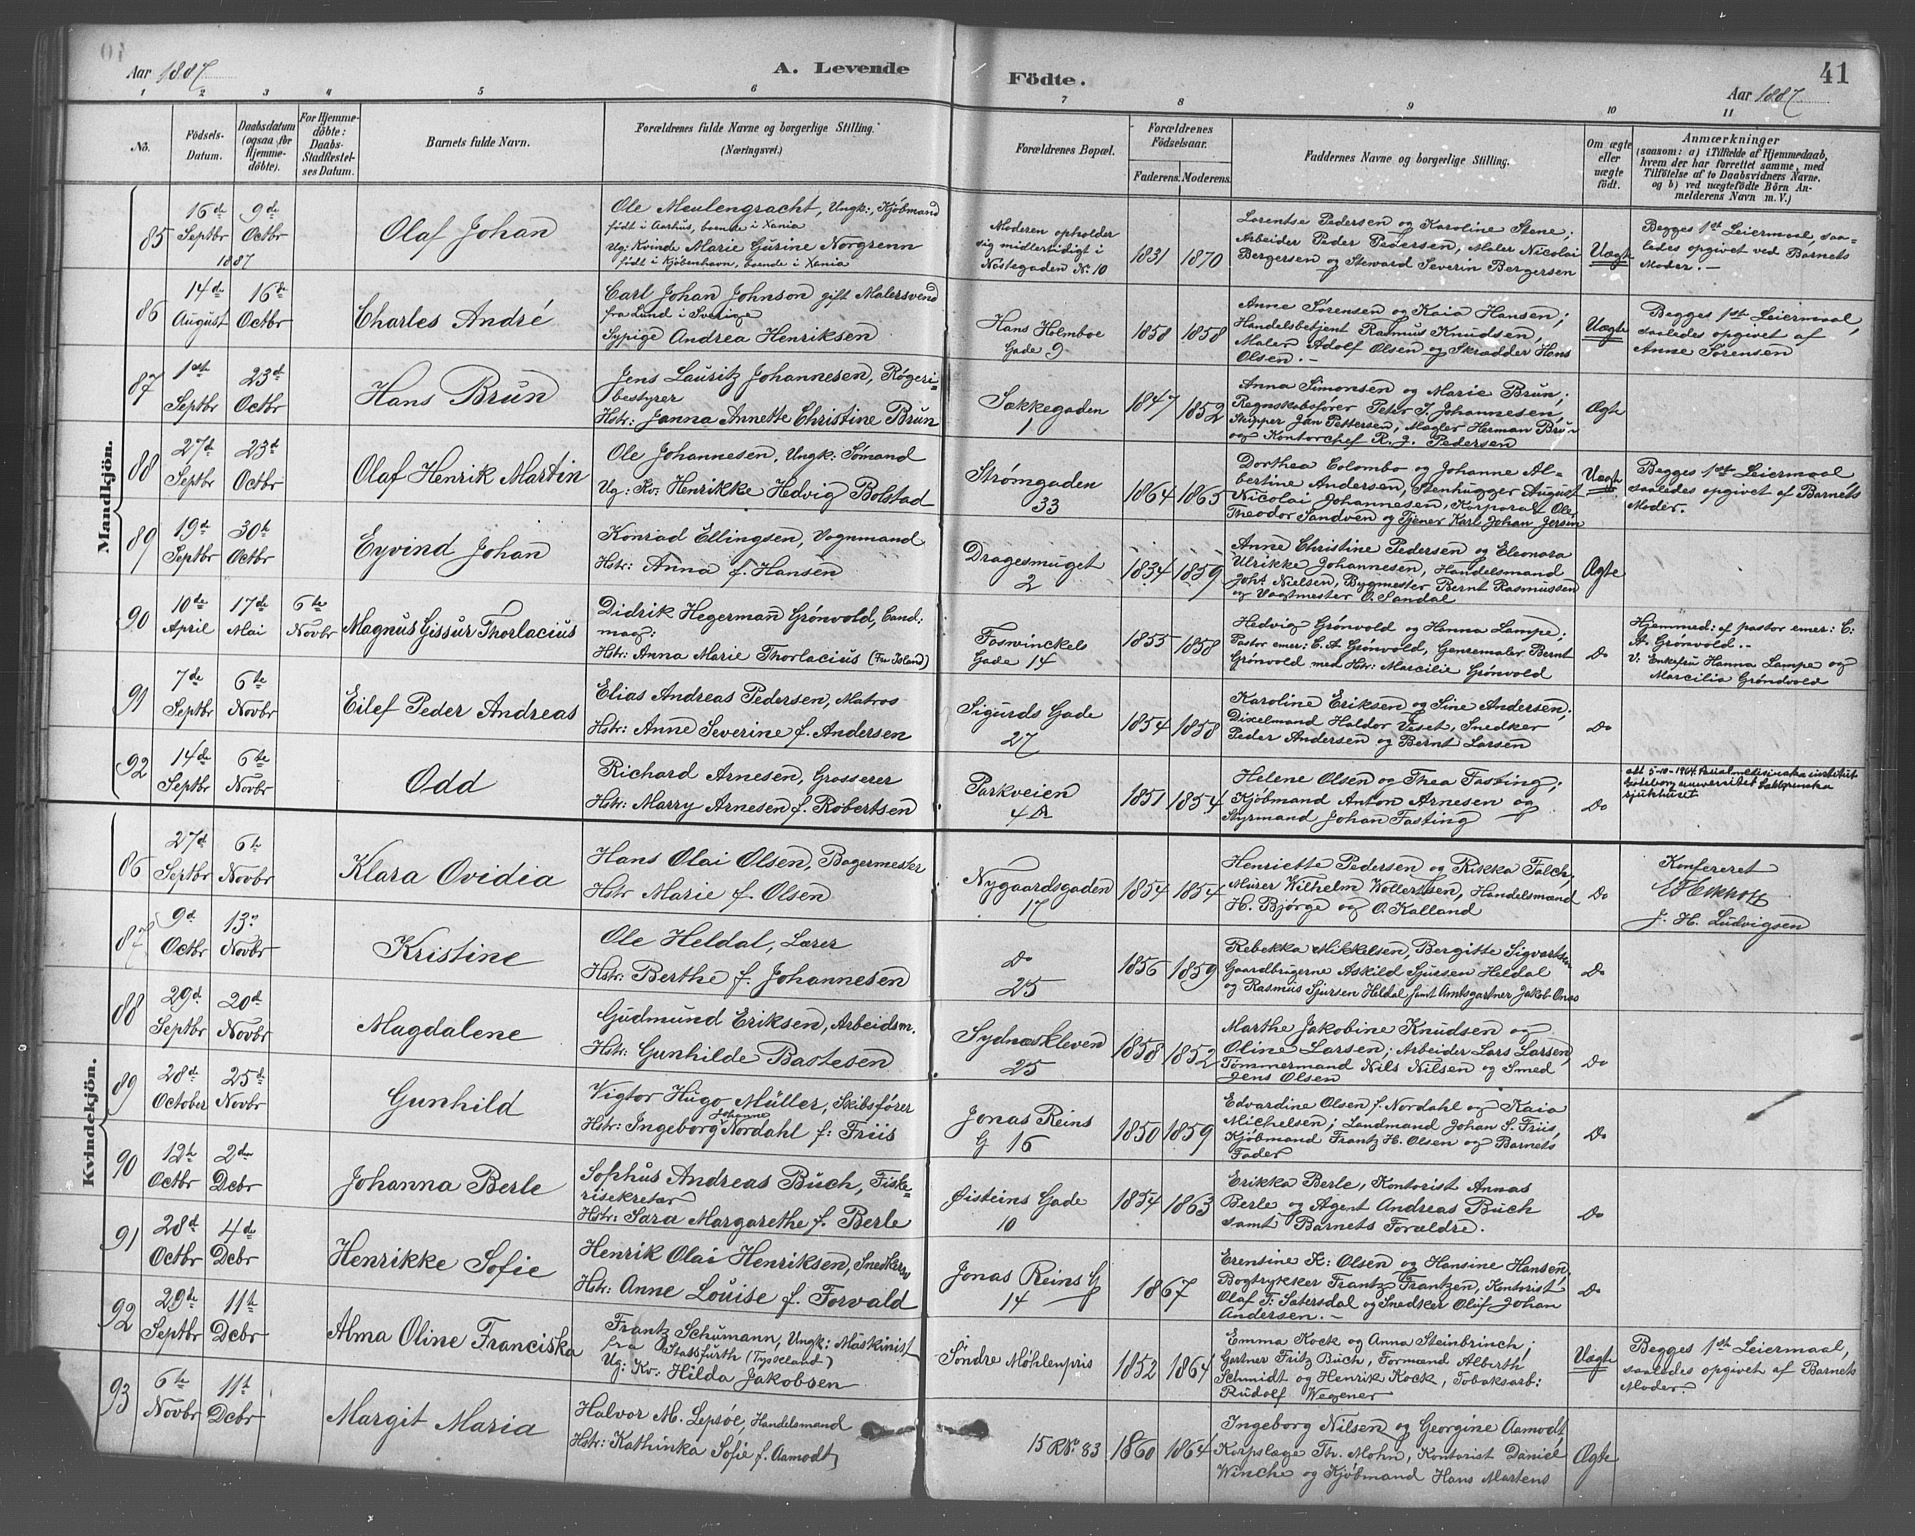 Aar 1887
A. Levende
Födte.
41
Aar 1887
1 2 3 4 5 6 7 8 9 10 11
No.
Födsels-
Datum.
Daabsdatum
(ogsaa for
Hjemme-
döbte).
For Hjemme-
döbte:
Daabs-
Stadfæstel-
ses Datum.
Barnets fulde Navn.
Forældrenes fulde Navne og borgerlige Stilling.
(Næringsvei.)
Forældrenes Bopæl.
Forældrenes
Födselsaar.
Faderens. Moderens.
Faddernes Navne og borgerlige Stilling.
Om ægte
eller
uægte
födt.
Anmærkninger
(saasom: a) i Tilfælde af Hjemmedaab,
hvem der har forrettet samme, med
Tilföielse af to Daabsvidners Navne.
og b) ved uægtefödte Börn An-
melderens Navn m. V.)
Mandkjön.
85
16de
Septbr
1887
9de
Octbr
Olaf Johan
Ole Meulengracht, Ungk:, Kjøbmand
født i Aarhus, boende i Xania
Ug: Kvinde Marie Gurine Norgrenn
født i Kjøbenhavn, boende i Xania
Moderen opholder
sig midlertidigt i
Nøstegaden No 10
1831 1870
Lorentse Pedersen og Karoline Stene;
Arbeider Peder Pedersen, Maler Nicolai
Bergersen og Steward Severin Bergersen
Uægte
Begges 1st Leiermaal, saa-
ledes opgivet ved Barnets
Moder. -
86
14de
August
16de
Octbr
Charles André
Carl Johan Johnson gift Malersvend
fra Lund i Sverige
Sypige Andrea Henriksen
Hans Holmboe
Gade 9
1858 1858
Anne Sørensen og Kaia Hansen;
Handelsbetjent Rasmus Knudsen,
Maler Adolf Olsen og Skrædder Hans
Olsen. -
Uægte
Begges 1ste Leiermaal,
saaledes opgivet af
Anne Sørensen
87
1ste
Septbr
23de
Octbr
Hans Brun
Jens Lauritz Johannesen, Røgeri-
bestyrer
Hstr: Janna Annette Christine Brun
Sækkegaden
1
1847 1852
Anna Simonsen og Marie Brun;
Regnskabsfører Peter J. Johannesen,
Skipper Jan Pettersen, Mægler Herman Brun
og Kontorchef R. J. Pedersen
Ægte
88
27de
Septbr
23de
Octbr
Olaf Henrik Martin
Ole Johannesen, Ungk: Sømand
Ug: Kv: Henrikke Hedvig Bolstad
Strømgaden
33
1864 1865
Dorthea Colombo og Johanne Al-
bertine Andersen, Stenhugger August
Nicolai Johannesen, Korporal Ole
Theodor Sandven og Tjener Karl Johan Jersin
Uægte
Begges 1ste Leiermaal
saaledes opgivet af Barnets
Moder.
89
19de
Septbr
30te
Octbr
Eyvind Johan
Konrad Ellingsen, Vognmand
Hstr: Anna f. Hansen
Dragesmuget
2
1834 1859
Anne Christine Pedersen og Eleonora
Ulrikke Johannesen, Handelsmand
Joh: Nielsen, Bygmester Bernt Rasmussen
og Vagtmester O. Sandal
Ægte
90
10de
April
17de
Mai
6te
Novbr
Magnus Gissur Thorlacius
Didrik Hegerman Grønvold, Cand:
mag:
Hstr: Anna Marie Thorlacius (Fra Island)
Foswinckels
Gade 14
1855 1858
Hedvig Grønvold og Hanna Lampe;
Pastor emer: C. A. Grønvold, Genremaler Bernt
Grønvold med Hstr: Marcilie Grønvold
Do
Hjemmed: af pastor emer: C:
A: Grønvold. -
V: Enkefru Hanna Lampe og
Marcilia Grøndvold
91
7de
Septbr
6te
Novbr
Eilef Peder Andreas
Elias Andreas Pedersen, Matros
Hstr: Anne Severine f. Andersen
Sigurds Gade
27
1854 1858
Karoline Eriksen og Sine Andersen;
Dixelmand Haldor Veset, Snedker
Peder Andersen og Bernt Larsen
Do
92
14de
Septbr
6te
Novbr
Odd
Richard Arnesen, Grosserer
Hstr: Marry Arnesen f. Robertsen
Parkveien
4
1851 1854
Helene Olsen og Thea Fasting;
Kjøbmand Anton Arnesen og
Styrmand Johan Fasting
Do
att 5-10-1964
Göteborg universitet
sjukhuset
Kvindekjön.
86
27de
Septbr
6te
Novbr
Klara Ovidia
Hans Olai Olsen, Bagermester
Hstr Marie f. Olsen
Nygaardsgaden
17
1854 1854
Henriette Pedersen og Rikka Falch,
Murer Wilhelm Wollertsen, Handelsmænd
H. Bjørge og O. Kalland
Do
Konfereret
J. H. Ludvigsen
87
9de
Octbr
13n
Novbr
Kristine
Ole Heldal, Lærer
Hstr: Berthe f. Johannesen
Do
25
1856 1859
Rebekka Mikkelsen, Bergitte Sigvartsen
Gaardbrugerne Askild Sjursen Heldal
og Rasmus Sjursen Heldal samt Amtsgartner Jakob Onas
Do
88
29de
Septbr
20de
Novbr
Magdalene
Gudmund Eriksen, Arbeidsm.
Hstr: Gunhilde Bastesen
Sydneskleven
25
1858 1852
Marthe Jakobine Knudsen og
Oline Larsen; Arbeider Lars Larsen,
Tømmermand Nils Nilsen og Smed
Jens Olsen
Do
89
28de
October
25de
Novbr
Gunhild
Vigtor Hugo Müller, Skibsfører
Hstr: Ingeborg Johanne Nordahl f: Friis
Jonas Reins
G 16
1850 1859
Edvardine Olsen f. Nordahl og Kaia
Michelsen; Landmand Johan S. Friis,
Kjøbmand Frantz H. Olsen og Barnets
Fader
Do
90
12te
Octbr
2den
Dcbr
Johanna Berle
Sophus Andreas Buch, Fiske-
risekretær
Hstr: Sara Margarethe f. Berle
Øisteins Gade
10
1854 1863
Erikka Berle, Kontorist Annas
Berle og Agent Andreas Buch
samt Barnets Forældre.
Do
91
28de
Octbr
4de
Dcbr
Henrikke Sofie
Henrik Olai Henriksen, Snedkersv
Hstr: Anne Louise f. Forvald
Jonas Reins G
14
1867
Erentine K: Olsen og Hansine Hansen,
Bogtrykker Frantz Frantzen, Kontorist
Olaf T: Sætersdal og Snedker Oluf Johan
Andersen. -
Do
92
29de
Septbr
11te
Dcbr
Alma Oline Franciska
Frantz Schumann, Ungk: Maskinist
fra Statsfurth (Tyskland)
Ug: Kv: Hilda Jakobsen
Søndre Møhlenpris
1852 1864
Emma Kock og Anna Steinbrinch;
Gartner Fritz Buch, Formand Alberth
Schmidt og Henrik Kock, Tobaksarb:
Rudolf Wegener
Uægte
Begges 1ste Leiermaal,
saaledes opgivet af Barnets
Moder.
93
6te
Novbr
11te
Dcbr
Margit Maria
Halvor M. Lepsøe, Handelsmand
Hstr: Kathinka Sofie f. Aamodt
15 R No 83
1860 1864
Ingeborg Nilsen og Georgine Aamodt,
Korpslæge Th. Mohn, Kontorist Daniel
Winche og Kjøbmand Hans Martens
Ægte